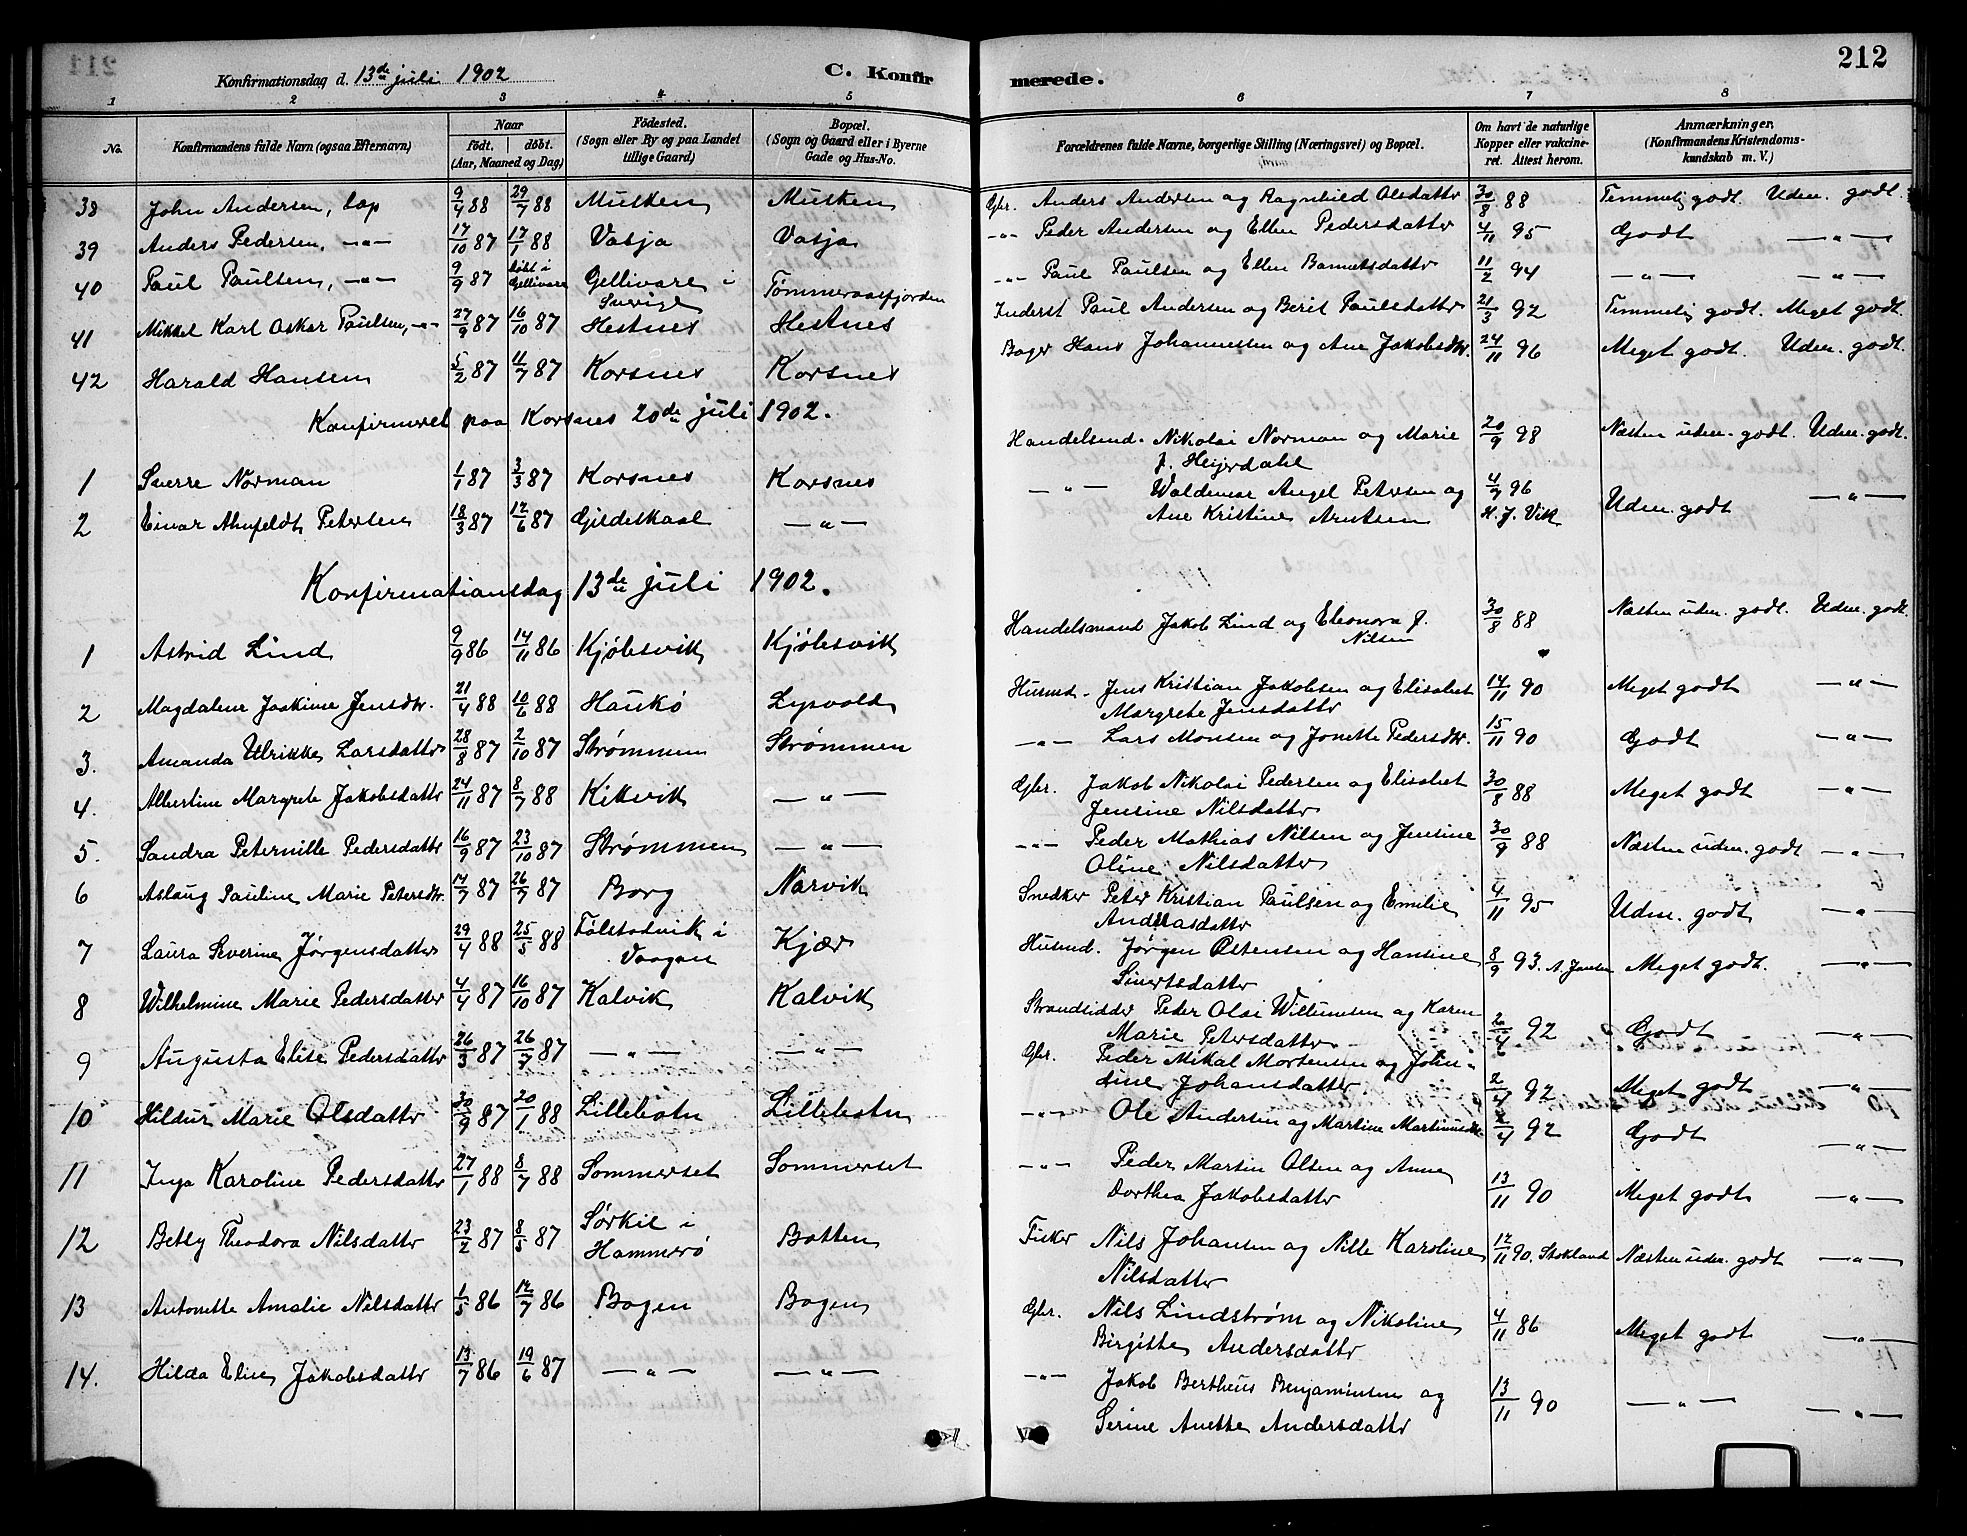 212
Konfirmationsdag d. 13de juli 1902 C. Konfir merede.
1 2 3 4 5 6 7 8
No. Konfirmandens fulde Navn (ogsaa Efternavn) Naar Födested. Bopæl. Forældrenes fulde Navne, borgerlige Stilling (Næringsvei) og Bopæl. Om havt de naturlige Anmærkninger,
födt. döbt. (Sogn eller By og paa Landet (Sogn og Gaard eller i Byerne Kopper eller vakcine- (Konfirmandens Kristendoms-
(Aar, Maaned og Dag) tillige Gaard) Gade og Hus-No. ret. Attest herom. kundskab m. V.)
38 John Andersen, lap 9/4 88 29/7 88 Musken Musken Gbr. Anders Andersen og Ragnhild Olsdattr 30/8 88 Temmelig godt. Uden. godt.
39 Anders Pedersen, -"- 17/10 87 17/1 88 Vasja Vasja -"- Peder Andersen og Ellen Pedersdattr 4/11 95 Godt -"-
40 Paul Paulsen, -"- 9/9 87 döbt i Gellivare Gellivare i Tømmeraasfjorden -"- Paul Paulsen og Ellen 11/2 94 -"- -"-
Sverige
41 Mikkel Karl Oskar Paulsen, -"- 27/9 87 16/10 87 Hestnes Hestnes Inderst Paul Andersen og Berit Paulsdattr 21/3 92 Temmelig godt. Meget godt.
42 Harald Hansen 5/2 87 11/7 87 Korsnes Korsnes Bager Hans Johannessen og Ane Jakobsdtr. 24/11 96 Meget godt. Uden. godt.
Konfirmeret paa Korsnes 20de juli 1902.
1 Sverre Norman 1/1 87 3/3 87 Korsnes Korsnes Handelsmd. Nikolai Norman og Marie 20/9 98 Næsten uden. godt. Uden. godt.
J. Heijerdahl
2 Einar Ahnfeldt Petersen 18/3 87 12/6 87 Gildeskaal -"- -"- Waldemar Angel Petersen og 4/7 96 Uden. godt -"-
Ane Kristine Arntsen H. J. Vik
Konfirmationsdag 13de juli 1902.
1 Astrid Lind 9/9 86 14/11 86 Kjøbsvik Kjøbsvik Handelsmand Jakob Lind og Eleonora J. 30/8 88 Næsten uden. godt. Uden. godt.
Nilsen
2 Magdalene Joakime Jensdtr. 21/4 88 10/6 88 Haukø Lysvold Husmd. Jens Kristian Jakobsen og Elisabet 14/11 90 Meget godt -"-
Margrete Jensdattr
3. Amanda Ulrikke Larsdattr 28/8 87 2/10 87 Strømmen Strømmen -"- Lars Monsen og Jonette Pedersdtr. 15/11 90 Godt -"-
4. Albertine Margrete Jakobsdattr 24/11 87 8/7 88 Kikvik -"- Gbr. Jakob Nikolai Pedersen og Elisabet 30/8 88 Meget godt -"-
Jensine Nilsdattr
5. Sandra Peternille Pedersdattr 16/9 87 23/10 87 Strømmen -"- -"- Peder Mathias Nilsen og Jensine 30/9 88 Næsten uden. godt -"-
Oline Nilsdattr
6 Aslaug Pauline Marie Petersdtr. 14/7 87 26/7 87 Borg Narvik Snedker Peter Kristian Paulsen og Emilie 4/11 95 Uden. godt -"-
Andreasdattr
7 Laura Severine Jørgensdattr 29/4 88 25/5 88 Følstadvik i Kjær Husmd. Jørgen Østensen og Hansine 8/9 93. A. Jensen Meget godt. -"-
Vaagan Sivertsdattr
8 Wilhelmine Marie Pedersdattr 4/4 87 16/10 87 Kalvik Kalvik Strandsidder Peder Olai Willumsen og Karen 2/4 92 Godt -"-
Marie Petersdattr
9 Augusta Elise Pedersdattr 26/3 87 26/7 87 -"- -"- Gbr. Peder Mikal Mortensen og John-
dine Johansdattr 2/4 92 Meget godt -"-
10 Hildur Marie Olsdattr 30/9 87 20/1 88 Lillebotn Lillebotn -"- Ole Andersen og Martine Martinusdtr 2/4 92 Godt -"-
11 Inga Karoline Pedersdattr 27/1 88 8/7 88 Sommerset Sommerset -"- Peder Martin Olsen og Anne 13/11 90 Meget godt -"-
Dorthea Jakobsdattr
12 Betsy Theodora Nilsdattr 23/2 87 8/5 87 Sørkil i Botten Fisker Nils Johansen og Nille Karoline 12/11 90. Stokland Næsten uden. godt -"-
Hammerø Nilsdattr
13 Antonette Amalie Nilsdattr 1/5 86 12/7 86 Bogen Bogen Gbr. Nils Lindstrøm og Nikoline 4/11 86 Meget godt -"-
Birgitte Andersdattr
14. Hilda Elise Jakobsdattr 13/7 86 19/6 87 -"- -"- -"- Jakob Bertheus Benjaminsen og 13/11 90 -"- -"-
Serine Anette Andersdattr